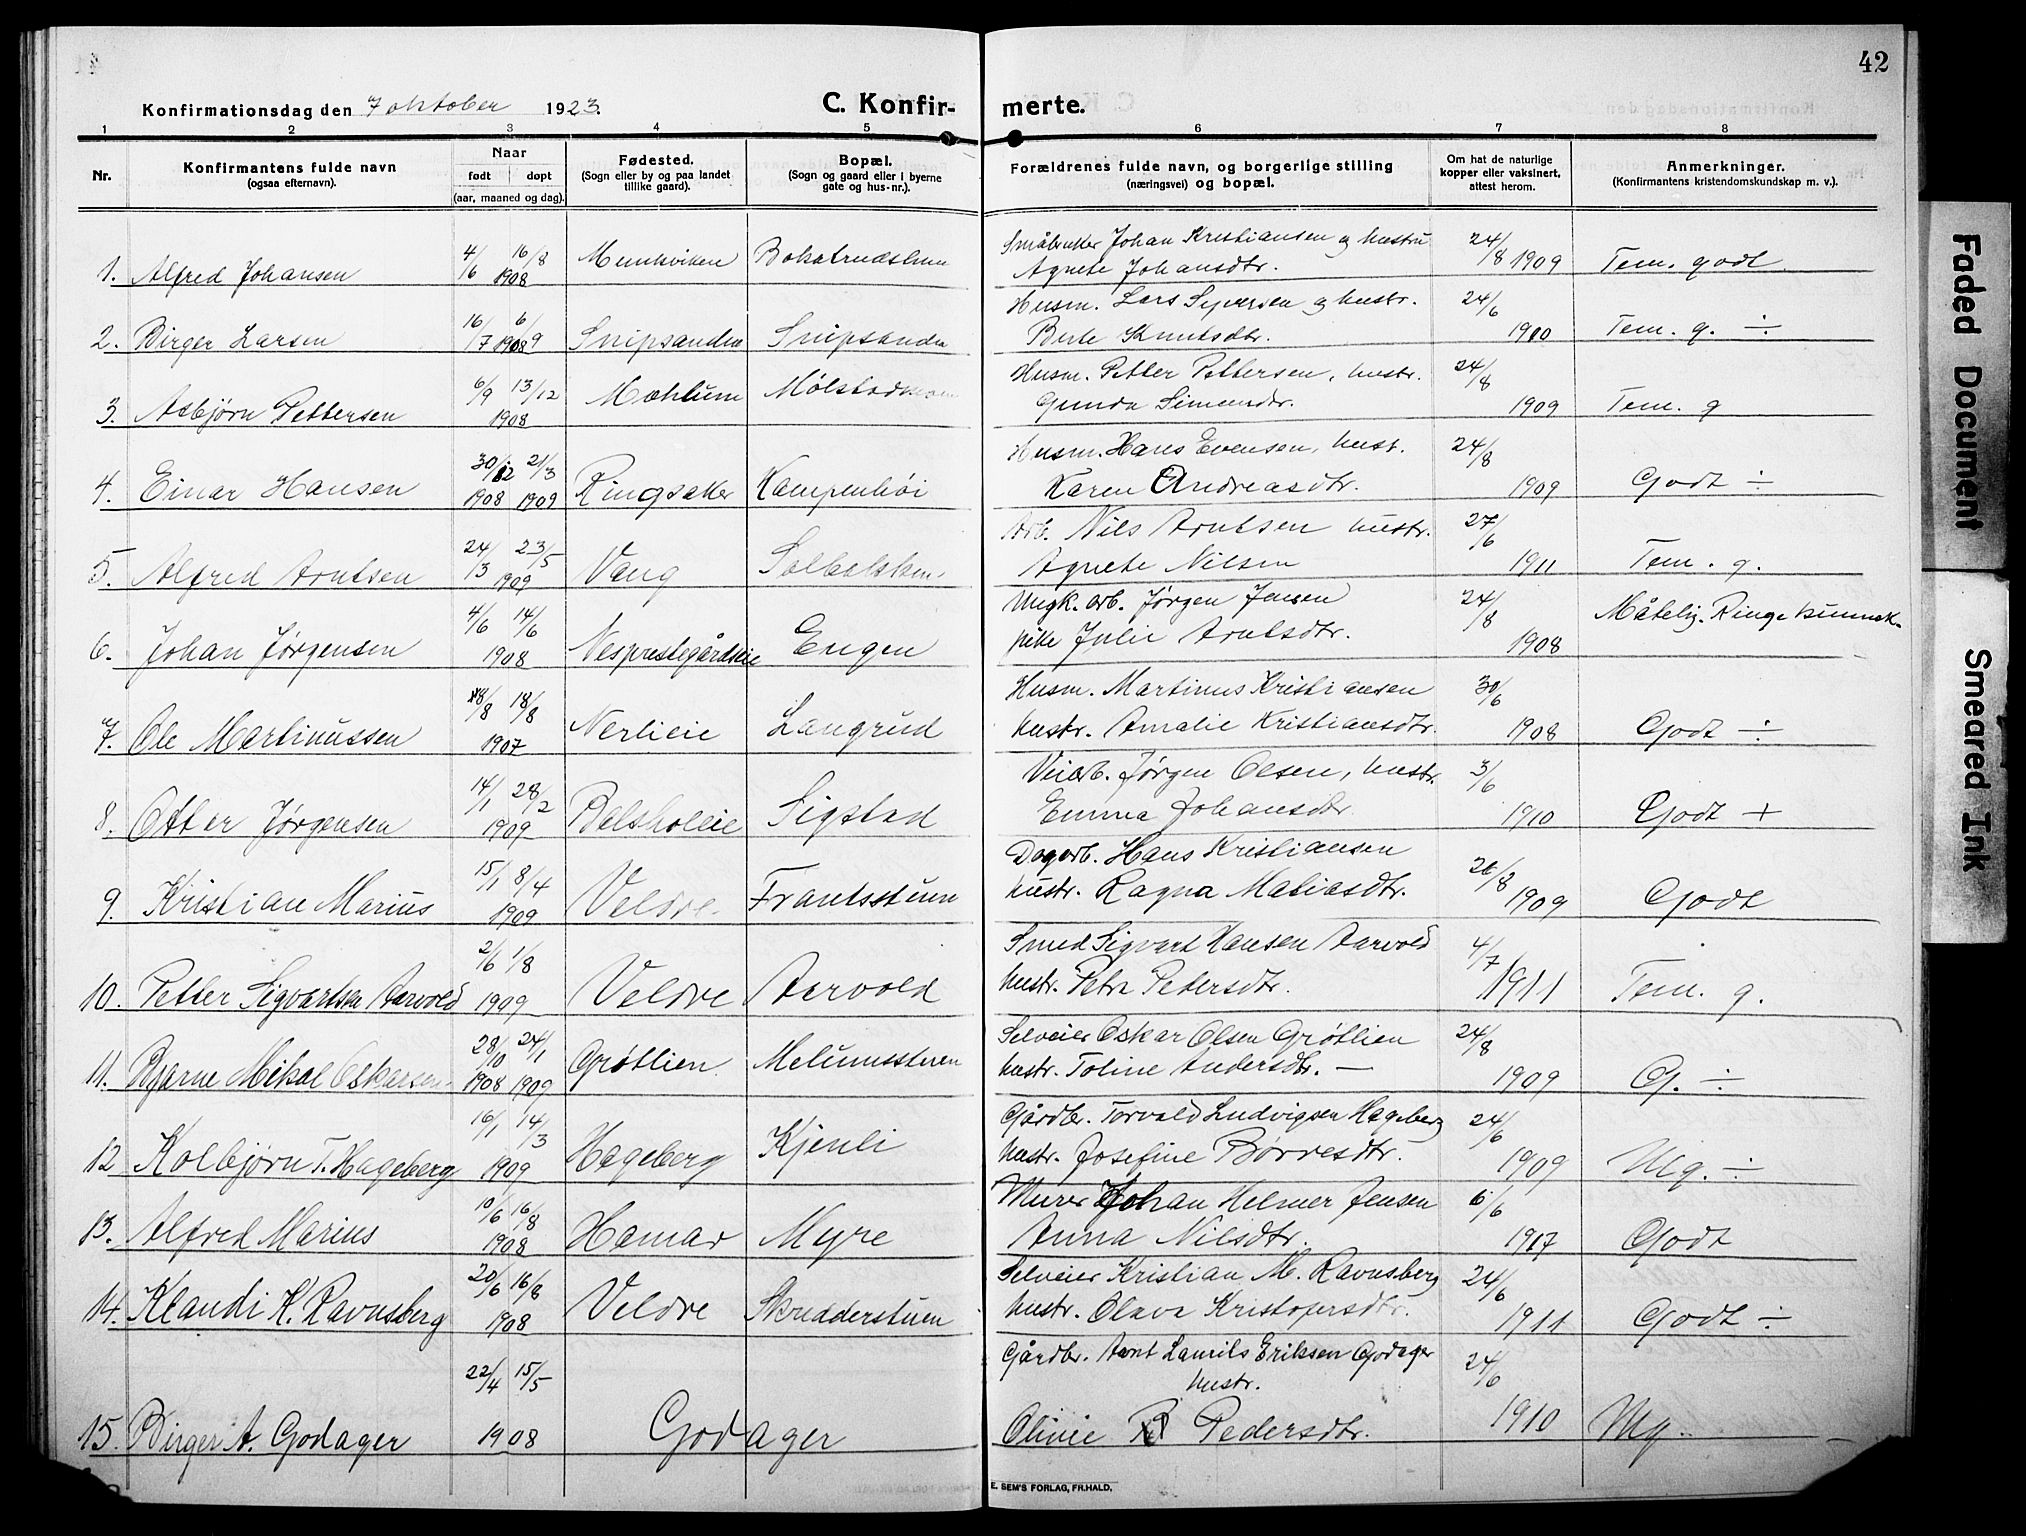 42
Konfirmationsdag den 7 oktober 1923.
C. Konfirmerte.
1 2 3 4 5 6 7 8
Nr.
Konfirmantens fulde navn
(ogsaa efternavn).
Naar
født døpt
(aar, maaned og dag).
Fødested.
(Sogn eller by og paa landet
tillike gaard).
Bopæl.
(Sogn og gaard eller i byerne
gate og hus-nr.).
Forældrenes fulde navn, og borgerlige stilling
(næringsvei) og bopæl.
Om hat de naturlige
kopper eller vaksinert,
attest herom.
Anmerkninger.
(Konfirmantens kristendomskundskap m. v.).
4/6 16/8 Småbruker Johan Kristiansen og hustru 24/8
1. Alfred Johansen 1908 Munkviken Agnete Johansdtr. 1909 Tem. godt.
16/7 6/9 Husm. Lars Syversen og hustr. 24/6
2. Birger Larsen 1908 Snipsanden Snipsanden Berte Knutsdtr. 1910 Tem. g. ÷
6/9 13/12 Husm. Petter Pettersen, hustr. 24/8
3. Asbjørn Pettersen 1908 Mæhlum Gunda Simensdtr. 1909 Tem. g
30/12 21/3 Husm. Hans Evensen, hust. 24/8
4. Einar Hansen 1908 1909 Ringsaker Kampenhøi Karen Andreasdtr. 1909 Godt ÷
24/3 23/5 Arb. Nils Arntsen hustr. 27/6
5. Alfred Arntsen 1909 Vang Agnete Nilsen 1911 Tem. g.
4/6 14/6 Ungk. arb. Jørgen Jensen 24/8 Måtelig. Ringe kunnsk.
6. Johan Jørgensen 1908 Nesprestegårdseie Engen pike Julie Arntsdtr. 1908
18/8 18/8 Husm. Martinus Kristiansen 30/6
7. Ole Martinussen 1907 Nerlieie Langrud hustr. Amalie Kristiansdtr. 1908 Godt ÷
14/1 28/2 Veiarb. Jørgen Olsen, hustr. 3/6
8. Otter Jørgensen 1909 Belsholeie Sigstad Emma Johansdtr. 1910 Godt +
15/1 8/4 Dagarb. Hans Kristiansen 26/8
9. Kristian Marius 1909 Veldre. Frantsstuen hustr. Ragna Matiasdtr. 1909 Godt
2/6 1/8 Smed Sigvart Hansen Aarvold 4/7
10. Petter Sigvartsen Aarvold 1909 Veldre Aarvold hustr. Petra Petersdtr. 1911 Tem. g.
28/10 24/1 Selveier Oskar Olsen Grøtlien 24/8
11. Bjarne Mikal Oskarsen 1908 1909 Grøtlien. Melumsstuen hustr. Toline Andersdtr. — 1909 G. ÷
16/1 14/3 Gårdbr. Torvald Ludvigsen Hageberg 24/6
12 Kolbjørn T. Hageberg 1909 Hageberg Kjenli hustr. Josefine Børresdtr. 1909 Mg. ÷
10/6 16/8 Murer Johan Helmer Jensen 6/6
13. Alfred Marius 1908 Hamar Myre Anna Nilsdtr. 1917 Godt
20/6 16/8 Selveier Kristian M. Ravnsberg 24/6
14. Klaudi K. Ravnsberg 1908 Veldre Skredderstuen hustr. Olava Kristofersdtr. 1911 Godt ÷
22/4 15/5 Gårdbr. Arnt Laurits Eriksen Godager 24/6
hustr.
15. Birger A. Godager 1908 Godager Olivie Pedersdtr. 1910 Mg.
E. SEM'S FORLAG, FR.HALD.
Faded Document
Smeared Ink